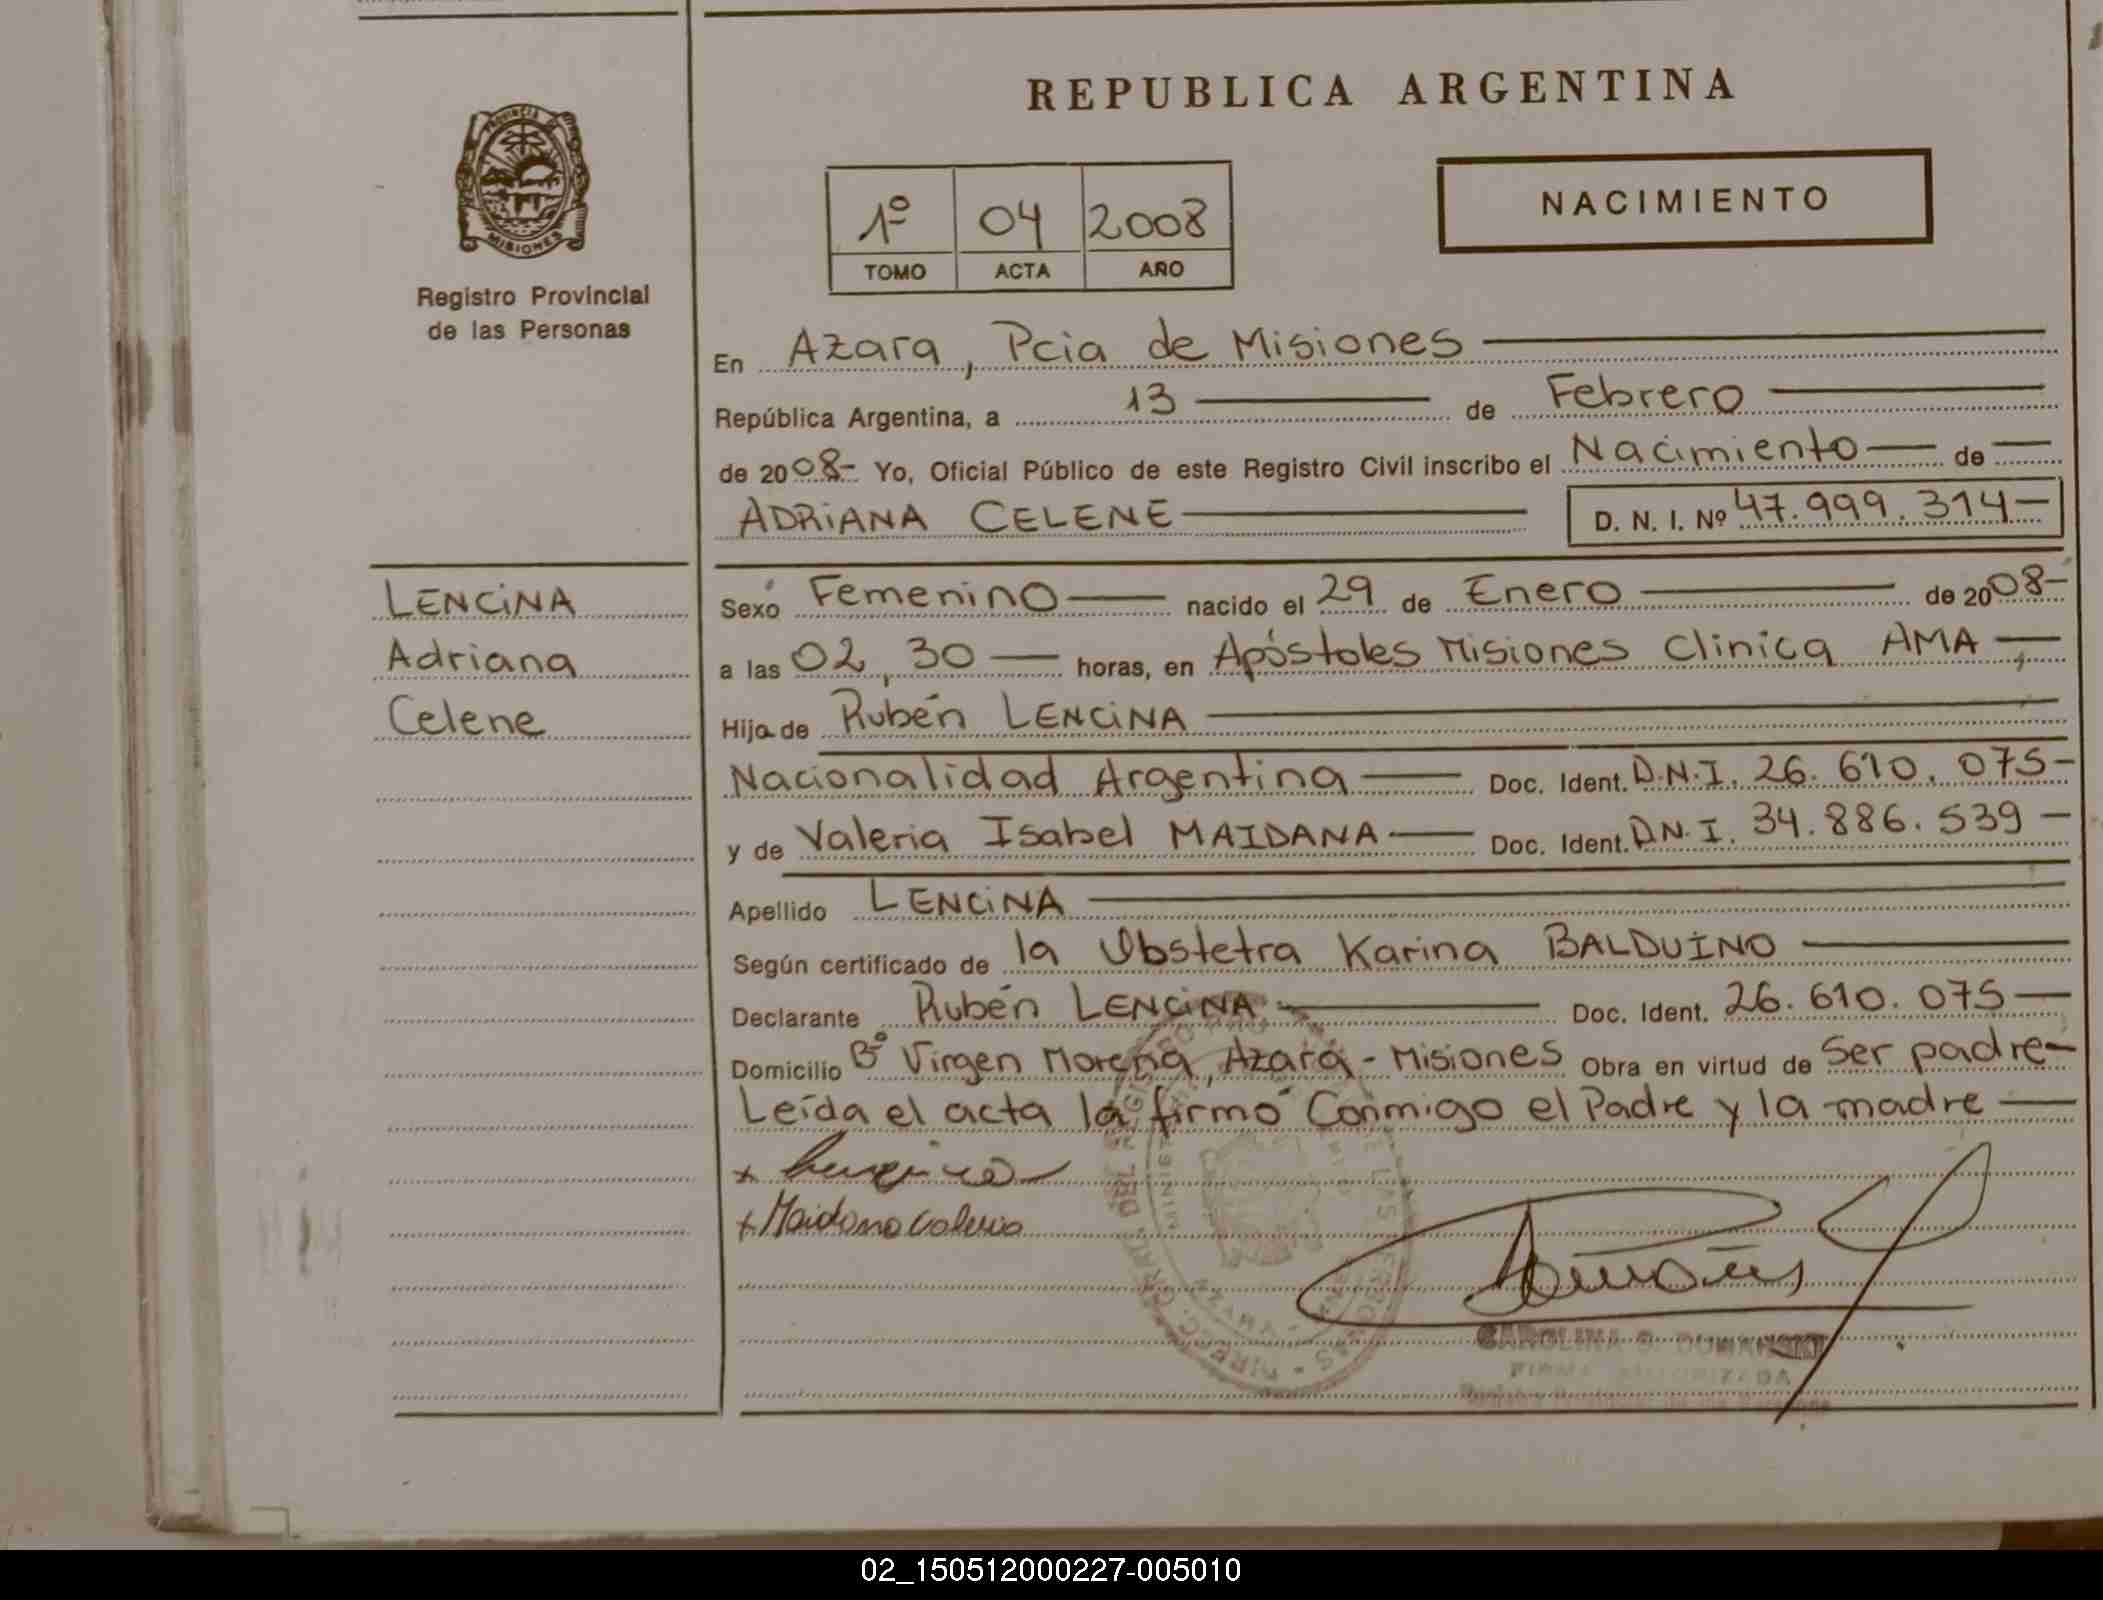 REPUBLICA ARGENTINA
PROVINCIA DE
MISIONES
Registro Provincial
de las Personas
1º 04 2008
TOMO ACTA AÑO
NACIMIENTO
En Azara, Pcia de Misiones
República Argentina, a 13 de Febrero
de 2008- Yo, Oficial Público de este Registro Civil inscribo el Nacimiento de
ADRIANA CELENE D. N. I. Nº 47.999.314-
LENCINA
Adriana
Celene
Sexo Femenino nacido el 29 de Enero de 2008-
a las 02,30 horas, en Apóstoles Misiones Clinica AMA
Hija de Rubén LENCINA
Nacionalidad Argentina Doc. Ident. D.N.I. 26.610.075-
y de Valeria Isabel MAIDANA Doc. Ident. D.N.I. 34.886.539-
Apellido LENCINA
Según certificado de la Obstetra Karina BALDUINO
Declarante Rubén LENCINA Doc. Ident. 26.610.075
Domicilio Bº Virgen Morena, Azara - Misiones Obra en virtud de Ser padre-
Leída el acta la firmó Conmigo el Padre y la madre
x Lencina
x Maidana Valeria
CAROLINA
02_150512000227-005010